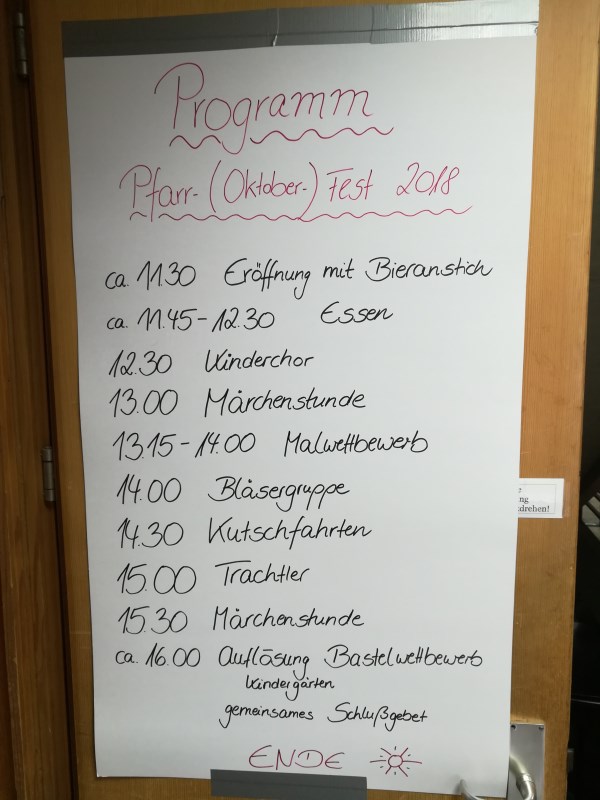 Programm
Pfarr-(Oktober-) Fest 2018
ca. 11.30 Eröffnung mit Bieranstich
ca. 11.45 - 12.30 Essen
12.30 Kinderchor
13.00 Märchenstunde
13.15 - 14.00 Malwettbewerb
14.00 Bläsergruppe
14.30 Kutschfahrten
15.00 Trachtler
15.30 Märchenstunde
ca. 16.00 Auflösung Bastelwettbewerb
Kindergärten
gemeinsames Schlußgebet
ENDE